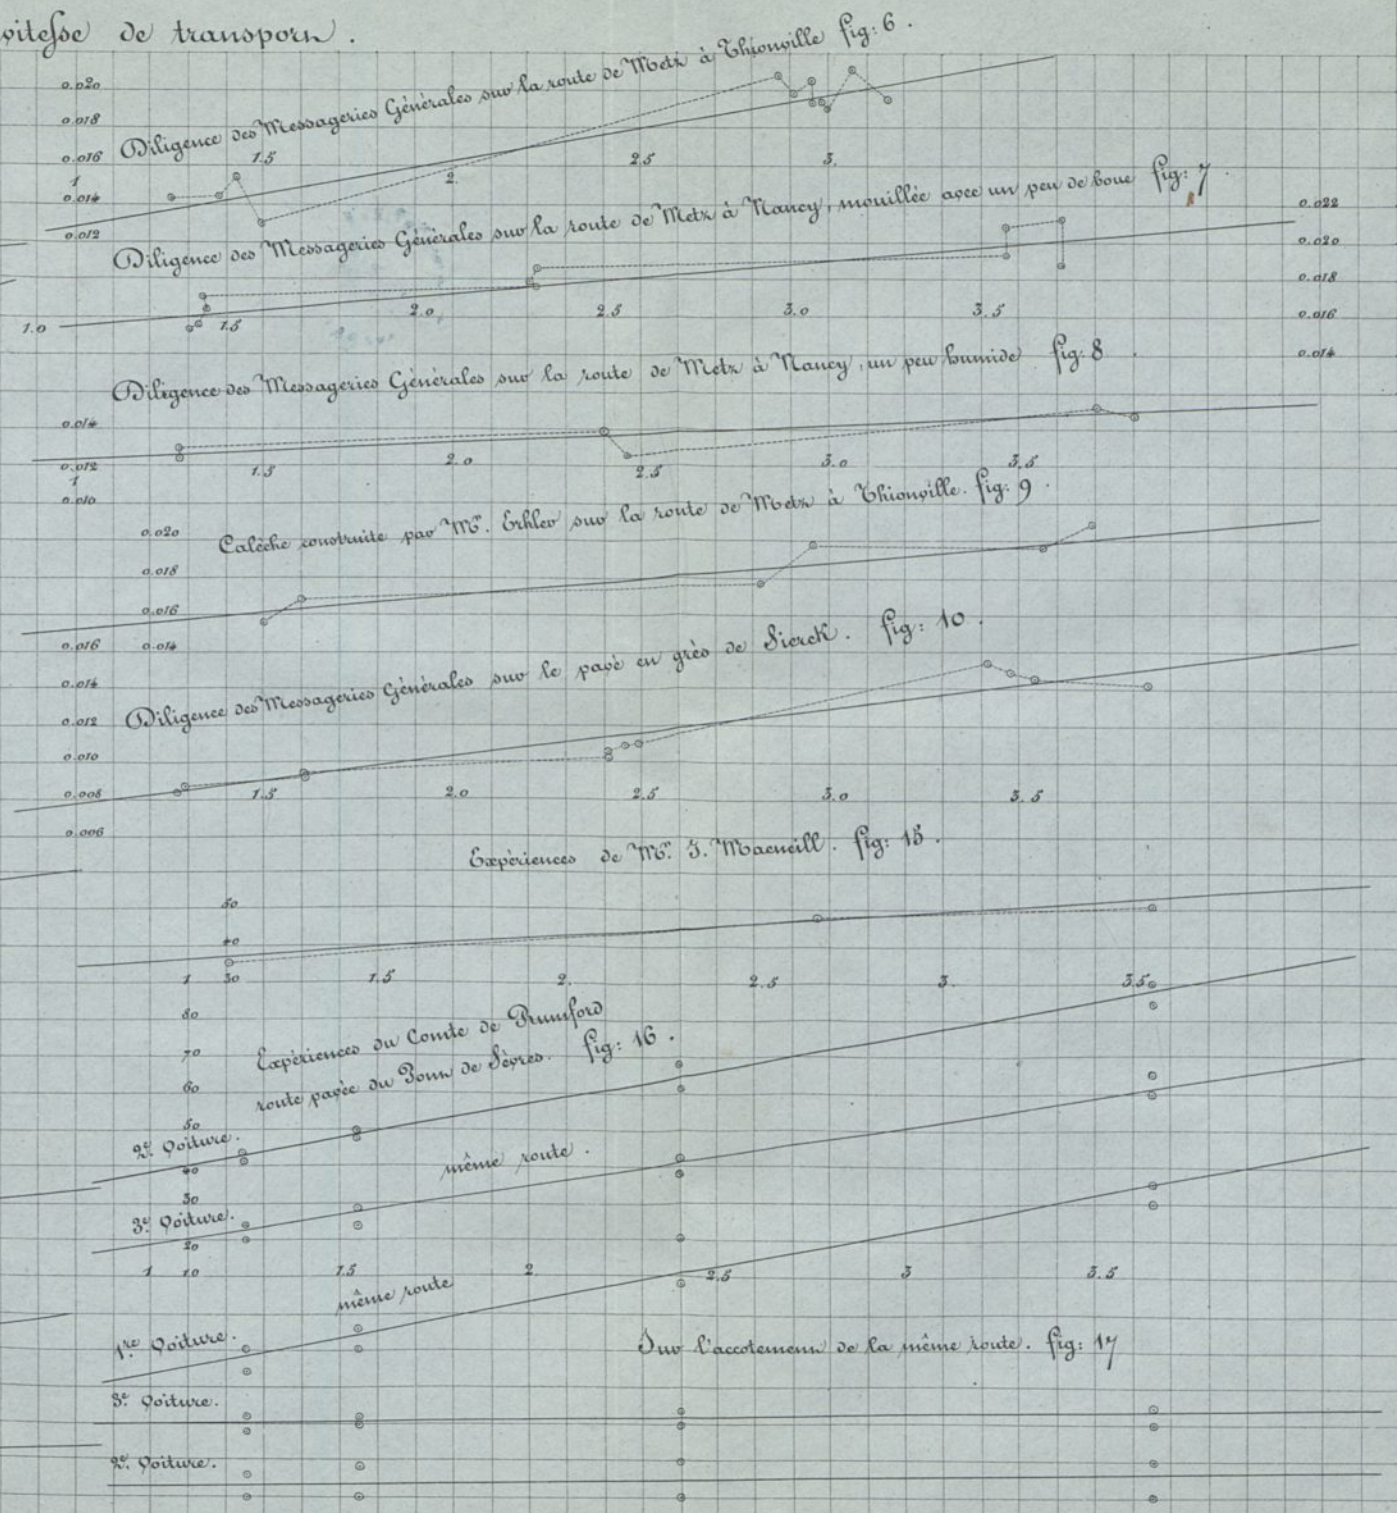 vitesse de transport.
Diligence des Messageries Générales sur la route de Metz à Thionville fig: 6.
0.020
0.018
0.016
1 1.5 2. 2.5 3.
0.014
0.012
Diligence des Messageries Générales sur la route de Metz à Nancy, mouillée avec un peu de boue fig: 7.
0.022
0.020
0.018
0.016
0.014
1.0 1.5 2.0 2.5 3.0 3.5
Diligence des Messageries Générales sur la route de Metz à Nancy, un peu humide fig: 8.
0.014
0.012
1 1.5 2.0 2.5 3.0 3.5
0.010
Calèche construite par Mr. Erhler sur la route de Metz à Thionville. fig: 9.
0.020
0.018
0.016
0.014
Diligence des Messageries Générales sur le pavé en grès de Sierck. fig: 10.
0.016
0.014
0.012
0.010
0.008 1.5 2.0 2.5 3.0 3.5
0.006
Expériences de Mr. J. Macneill. fig: 15.
50
40
1 30 1.5 2. 2.5 3. 3.5
Expériences du Comte de Rumford
route pavée du Pont de Sèvres. fig: 16.
80
70
60
50
2e. Voiture.
40
même route.
30
3e. Voiture.
20
1 10 1.5 2 2.5 3 3.5
même route
1re Voiture.
Sur l'accotement de la même route. fig: 17
3e Voiture.
2e. Voiture.